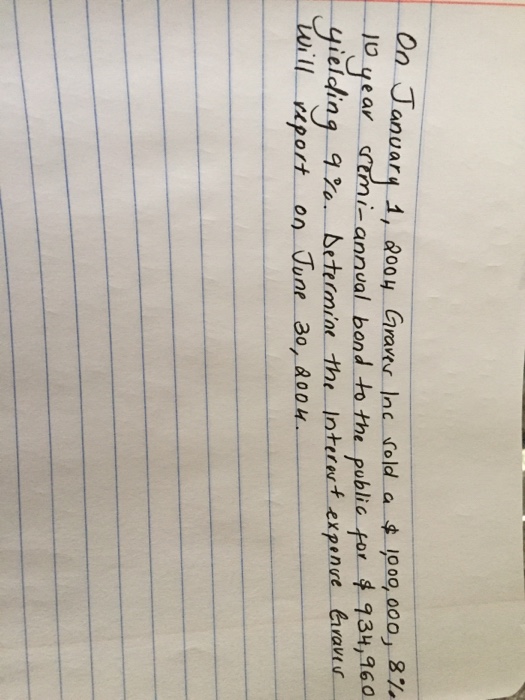 On January 1, 2004 Graves Inc sold a $ 1,000,000, 8%
10 year semi-annual bond to the public for $ 934,960
yielding 9%. Determine the Interest expense Graves
Will report on June 30, 2004.